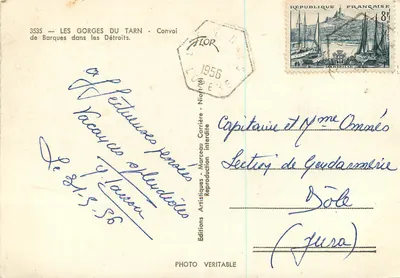 3535 — LES GORGES DU TARN - Convoi
de Barques dans les Détroits.
FLOR
1956
RÉPUBLIQUE FRANÇAISE
8F
Affectueuses pensées
Vacances splendides
Le 31.3.56
Editions Artistiques - Marceau Carrière - Nîmes
Reproduction interdite
Capitaine et Mme Omnès
Section de Gendarmerie
Dôle
(Jura)
PHOTO VERITABLE